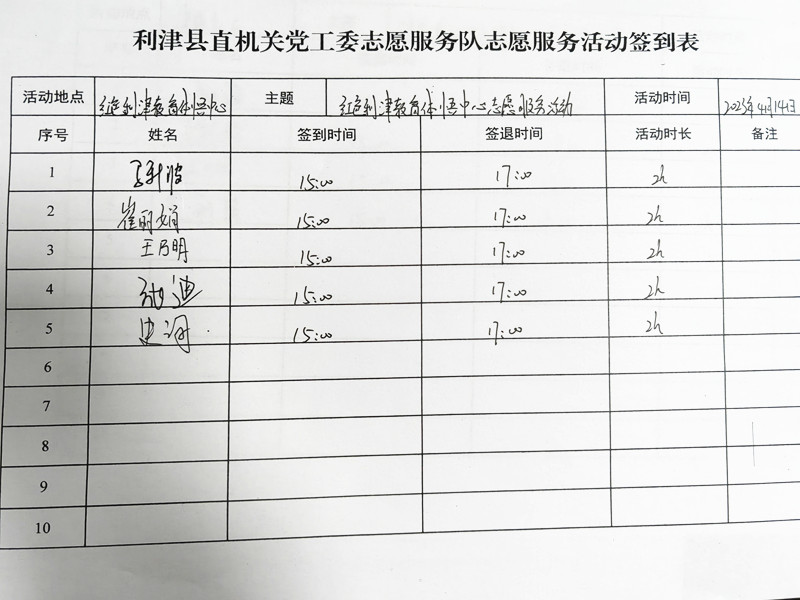 利津县直机关党工委志愿服务队志愿服务活动签到表
活动地点 红色利津教育体悟中心 主题 红色利津教育体悟中心志愿服务活动 活动时间 2023年4月14日
序号 姓名 签到时间 签退时间 活动时长 备注
1 15:00 17:00 2h
2 崔丽娟 15:00 17:00 2h
3 王乃明 15:00 17:00 2h
4 迪 15:00 17:00 2h
5 15:00 17:00 2h
6
7
8
9
10